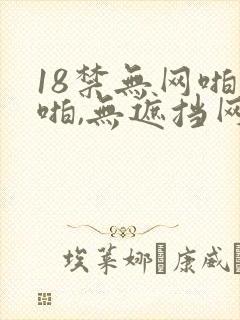 18禁無网啪
啪,無遮挡网
埃莱娜·康威